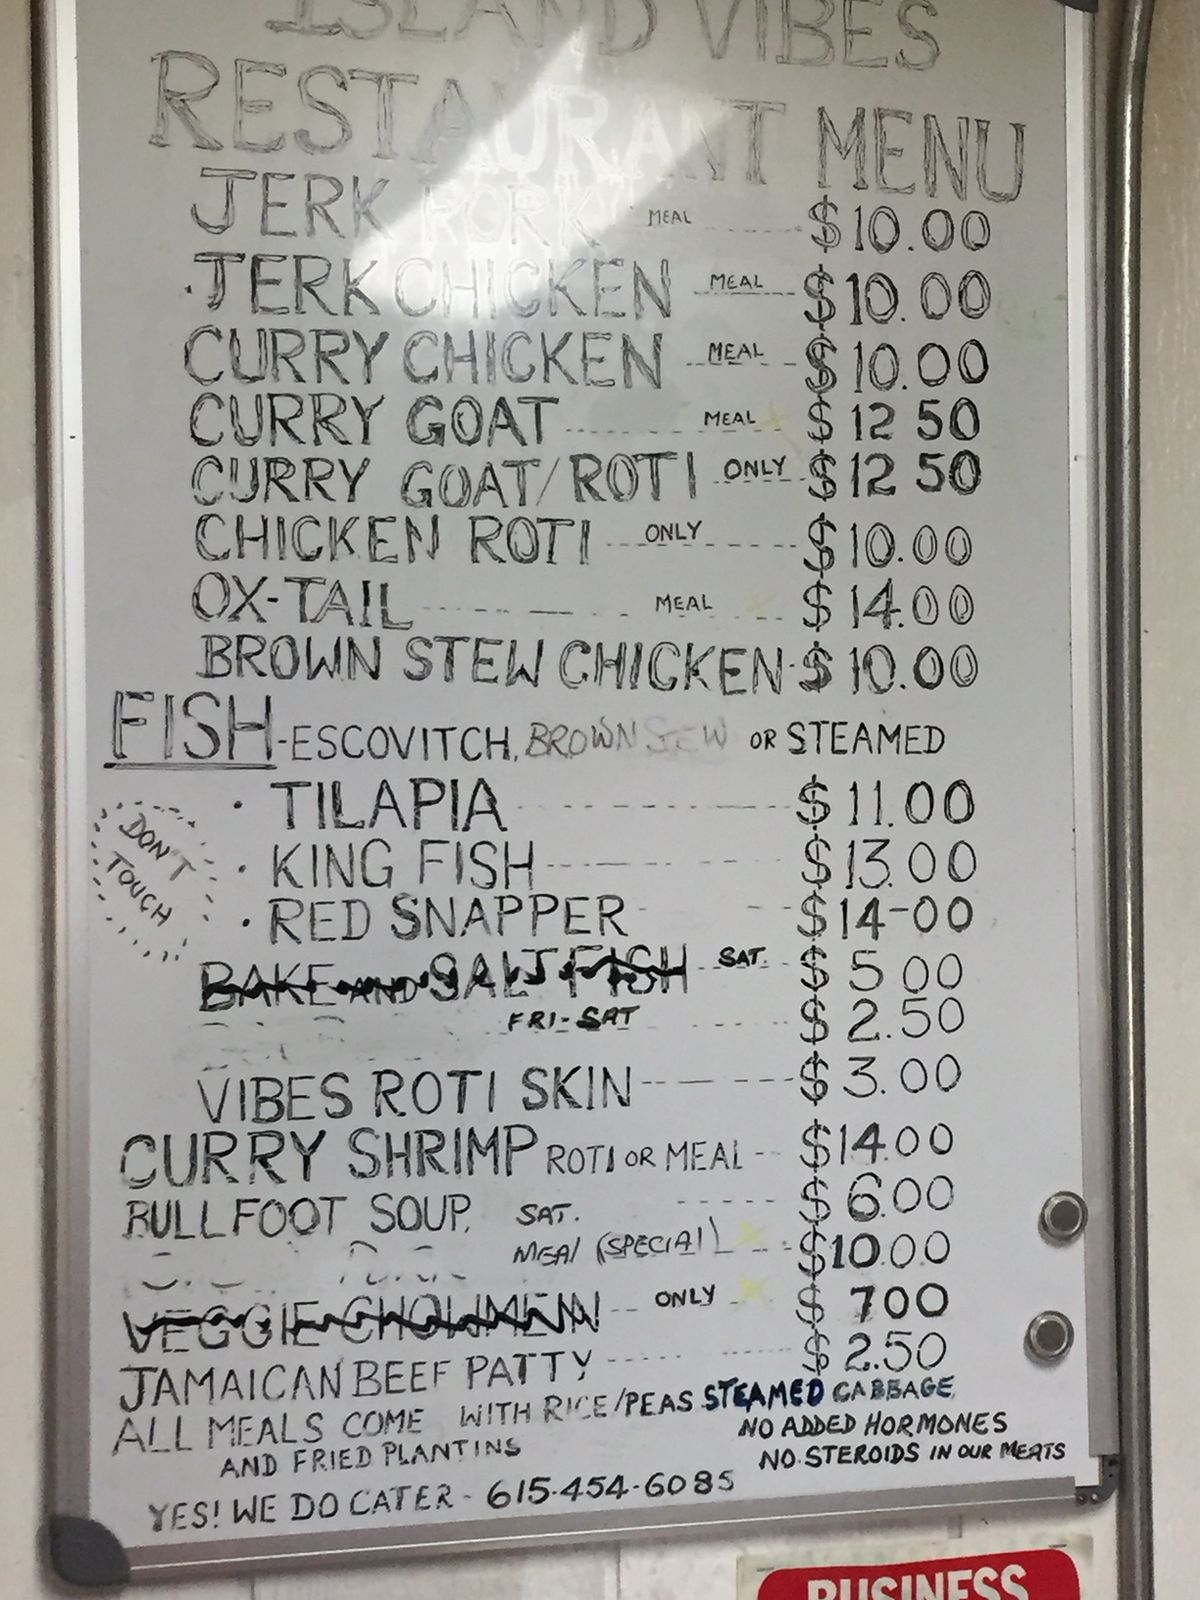 ISLAND VIBES
RESTAURANT MENU
JERK PORK MEAL $10.00
JERK CHICKEN MEAL $10.00
CURRY CHICKEN MEAL $10.00
CURRY GOAT MEAL $12 50
CURRY GOAT/ROTI ONLY $12 50
CHICKEN ROTI ONLY $10.00
OX-TAIL MEAL $14.00
BROWN STEW CHICKEN $10.00
FISH-ESCOVITCH, BROWN STEW OR STEAMED
TILAPIA $11.00
DON'T TOUCH
KING FISH $13.00
RED SNAPPER $14-00
BAKE AND SALTFISH SAT. $5 00
FRI-SAT $2.50
VIBES ROTI SKIN $3.00
CURRY SHRIMP ROTI OR MEAL $14.00
BULLFOOT SOUP, SAT. $6.00
MEAl (SPECIAl) $10.00
VEGGIE CHOWMEIN ONLY $ 700
JAMAICAN BEEF PATTY $2.50
ALL MEALS COME WITH RICE/PEAS STEAMED CABBAGE,
AND FRIED PLANTINS
NO ADDED HORMONES
NO STEROIDS IN OUR MEATS
YES! WE DO CATER - 615-454-6085
BUSINESS